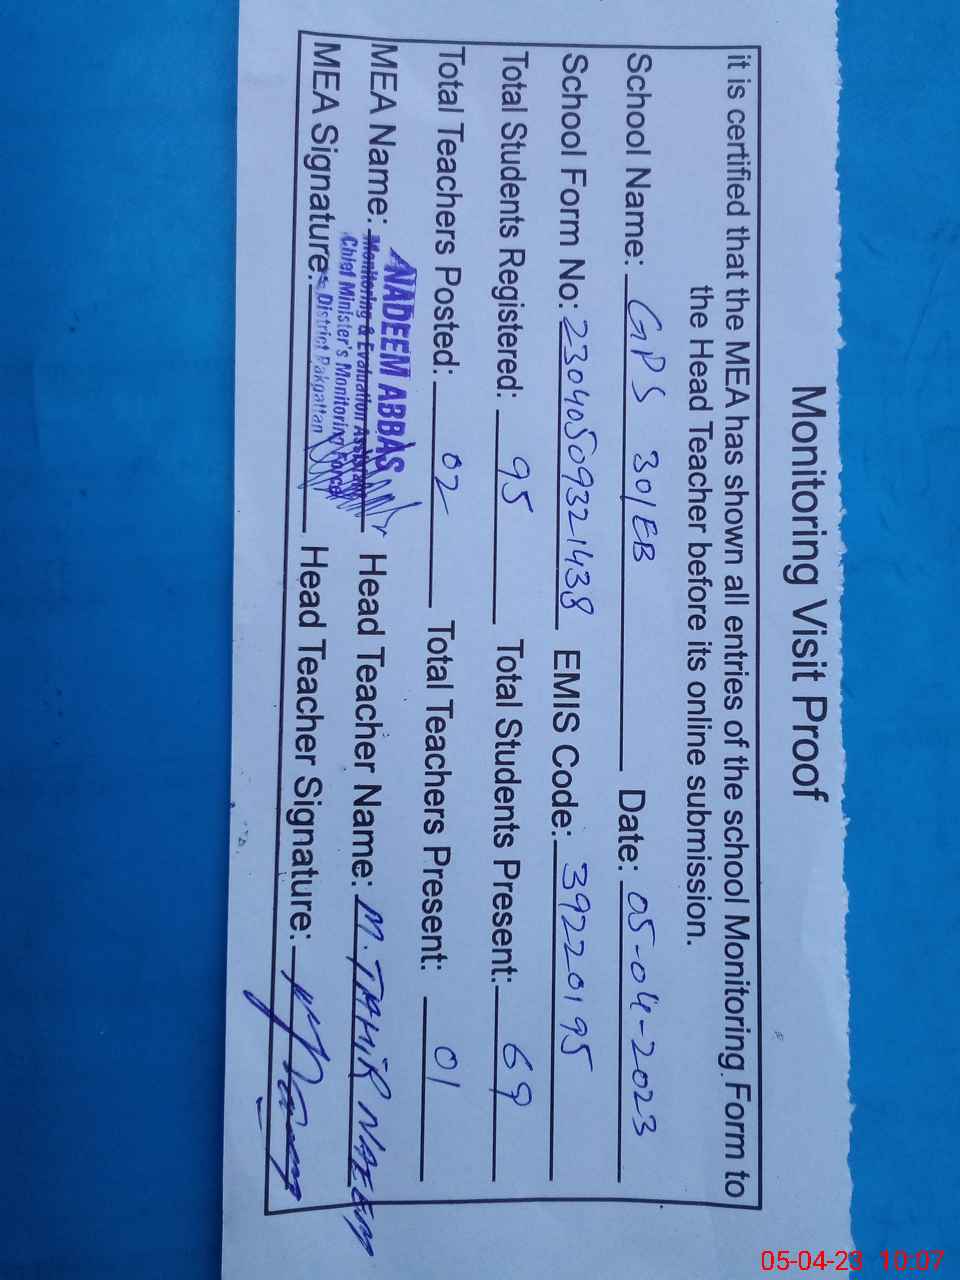 Monitoring Visit Proof
it is certified that the MEA has shown all entries of the school Monitoring Form to
the Head Teacher before its online submission.
School Name: GPS 30/EB Date: 05-04-2023
School Form No: 23040509321438 EMIS Code: 39220195
Total Students Registered: 95 Total Students Present: 69
Total Teachers Posted: 02 Total Teachers Present: 01
MEA Name: NADEEM ABBAS Head Teacher Name: M. TAHIR NAEEM
Monitoring & Evaluation Assistant
Chief Minister's Monitoring Force
District Pakpattan
MEA Signature: Head Teacher Signature:
05-04-23 10:07